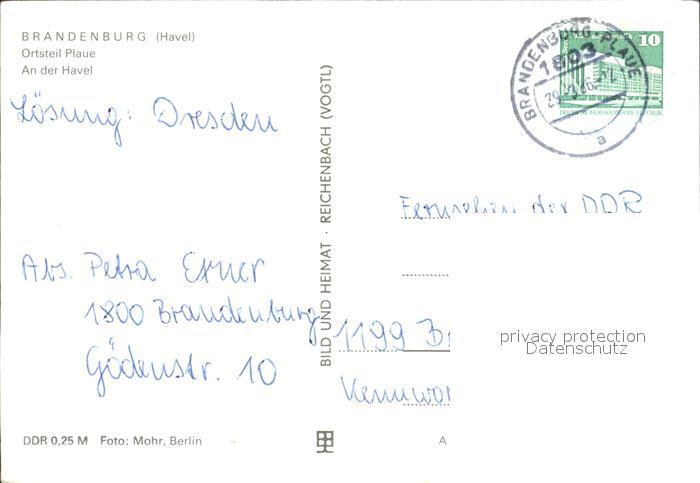 BRANDENBURG (Havel)
Ortsteil Plaue
An der Havel
Lösung: Dresden
Abs. Petra Exner
1800 Brandenburg
Gödenstr. 10
DDR 0,25 M Foto: Mohr, Berlin
BILD UND HEIMAT · REICHENBACH (VOGTL)
BRANDENBURG-PLAUE
1803
a
10
DEUTSCHE DEMOKRATISCHE REPUBLIK
Fernsehen der DDR
1199 B
Kennwor
privacy protection
Datenschutz
A